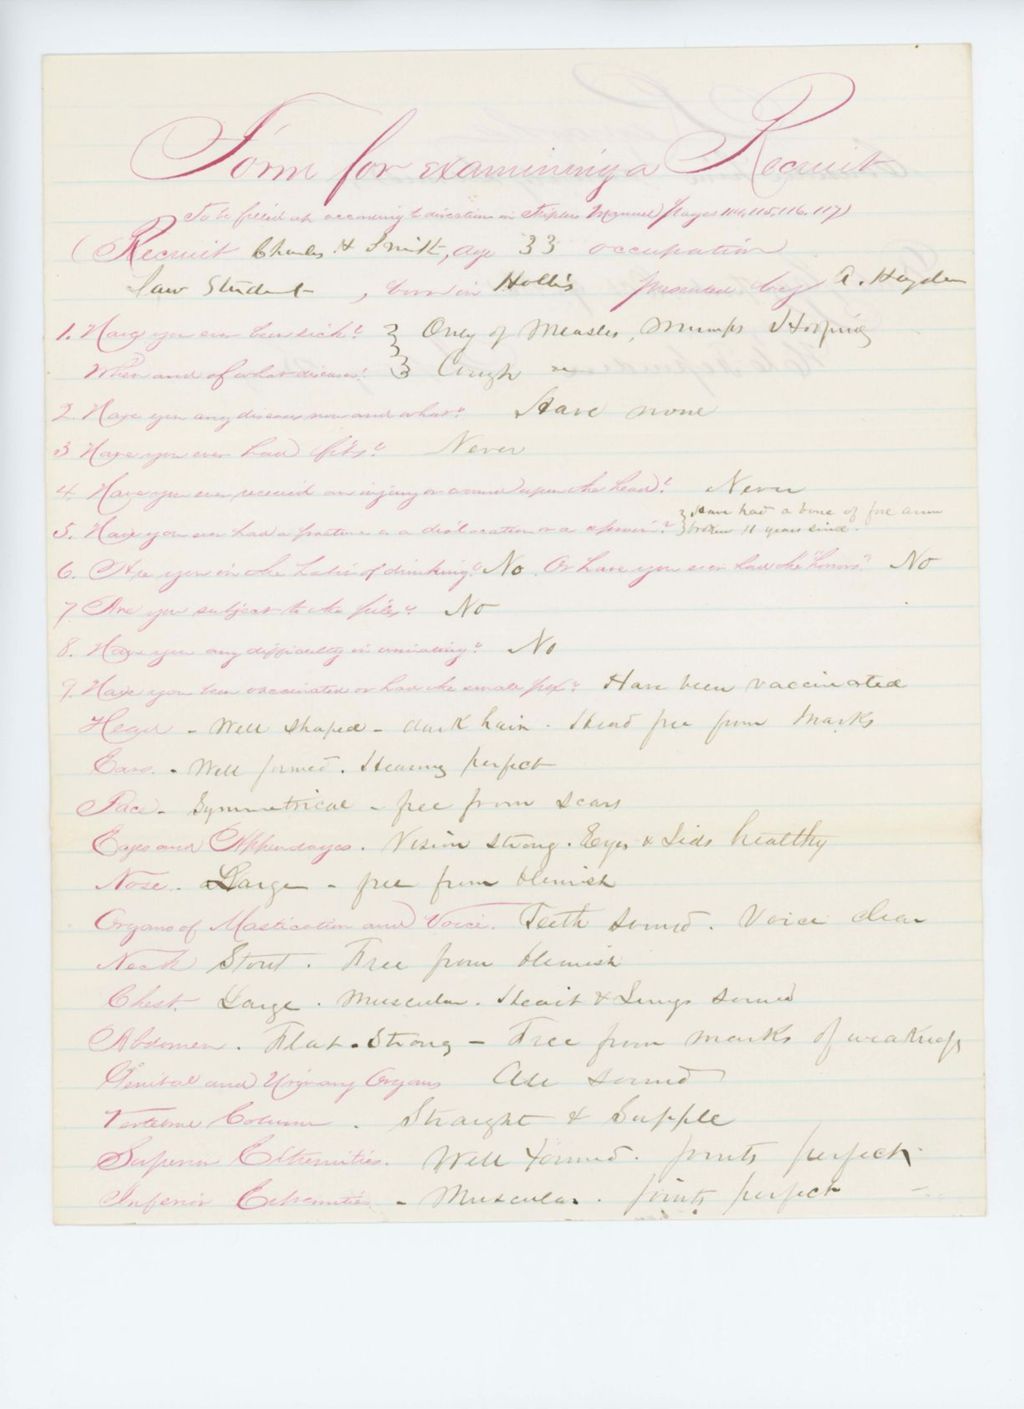 Form for examining a Recruit
(To be filled up according to directions in Triplers Manual) (pages 114, 115, 116, 117)
(Recruit Charles H Smith, age 33 occupation
law Student, born in Hollis presented by A. Hayden
1. Have you ever been sick? } Only of Measles, Mumps & Hooping
When and of what disease? } Cough
2. Have you any disease now and what? Have none
3 Have you ever had fits? Never
4. Have you ever received an injury or wound upon the head? Never
5. Have you ever had a fracture or a dislocation or a sprain? } Have had a bone of fore arm
} broken 11 years since.
6. Are you in the habit of drinking? No. Or have you ever had the "horrors"? No
7 Are you subject to the piles? No
8. Have you any difficulty in urinating? No
9. Have you been vaccinated or had the small pox? Have been vaccinated
Head - Well shaped - dark hair. Head free from marks
Ears. - Well formed. Hearing perfect
Face - Symmetrical - free from scars
Eyes and Appendages. Vision strong. Eyes & Lids healthy
Nose. Large - free from blemish
Organs of Mastication and Voice. Teeth sound. Voice clear
Neck Stout. Free from blemish
Chest. Large. Muscular. Heart & Lungs sound
Abdomen. Flat. Strong - Free from marks of weakness
Genital and Urinary Organs All sound
Vertebral Column. Straight & Supple
Superior Extremities. Well formed. Joints perfect.
Inferior Extremities - Muscular. Joints perfect